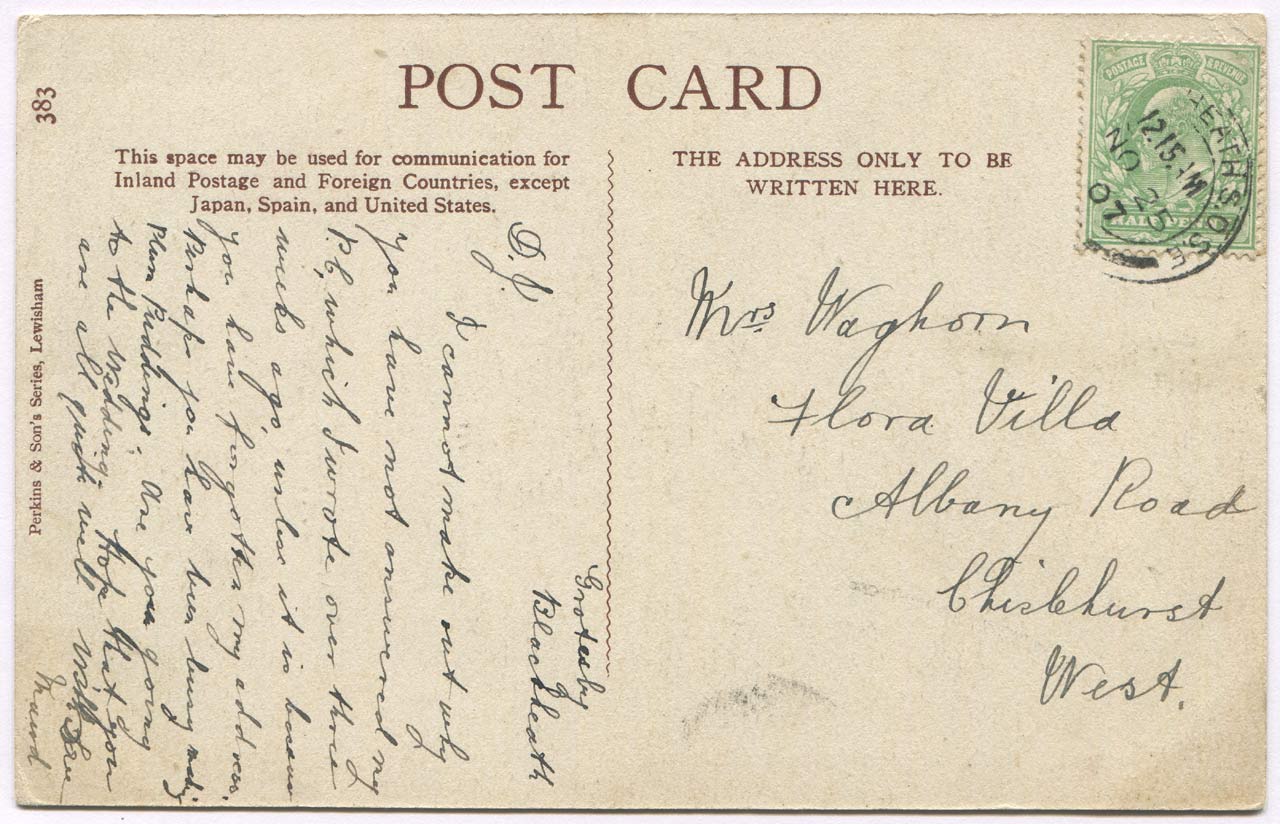 POST CARD
383
This space may be used for communication for
Inland Postage and Foreign Countries, except
Japan, Spain, and United States.
THE ADDRESS ONLY TO BE
WRITTEN HERE.
POSTAGE & REVENUE
HALF PENNY
HEATH S.O. S.E
12.15
NO 25
07
Perkins & Son's Series, Lewisham
Grotesby
Blackheath
D. J.
I cannot make out why
You have not answered my
P.C. which I wrote over three
weeks ago, unless it is because
you have forgotten my address.
Perhaps you have been busy making
Plum Puddings. Are you going
to the Wedding. Hope that you
are all quite well. With Love
Maud
Mrs Waghorn
Flora Villa
Albany Road
Chislehurst
West.